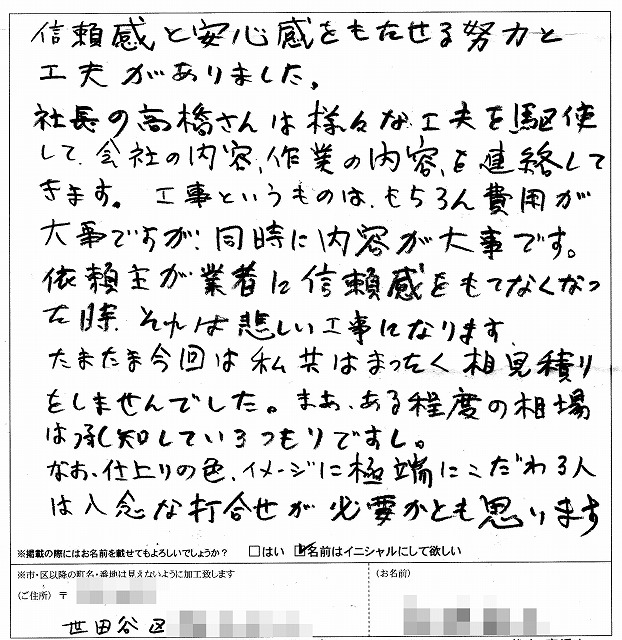 信頼感と安心感をもたせる努力と
工夫がありました。
社長の高橋さんは様々な工夫を駆使
して、会社の内容、作業の内容、を連絡して
きます。工事というものは、もちろん費用が
大事ですが、同時に内容が大事です。
依頼主が業者に信頼感をもてなくなっ
た時、それは悲しい工事になります。
たまたま今回は私共はまったく相見積り
をしませんでした。まあ、ある程度の相場
は承知しているつもりですし。
なお、仕上りの色、イメージに極端にこだわる人
は入念な打合せが必要かとも思います
※掲載の際にはお名前を載せてもよろしいでしょうか? □はい □名前はイニシャルにして欲しい
※市・区以降の町名・番地は見えないように加工致します
(ご住所) 〒
世田谷区
(お名前)